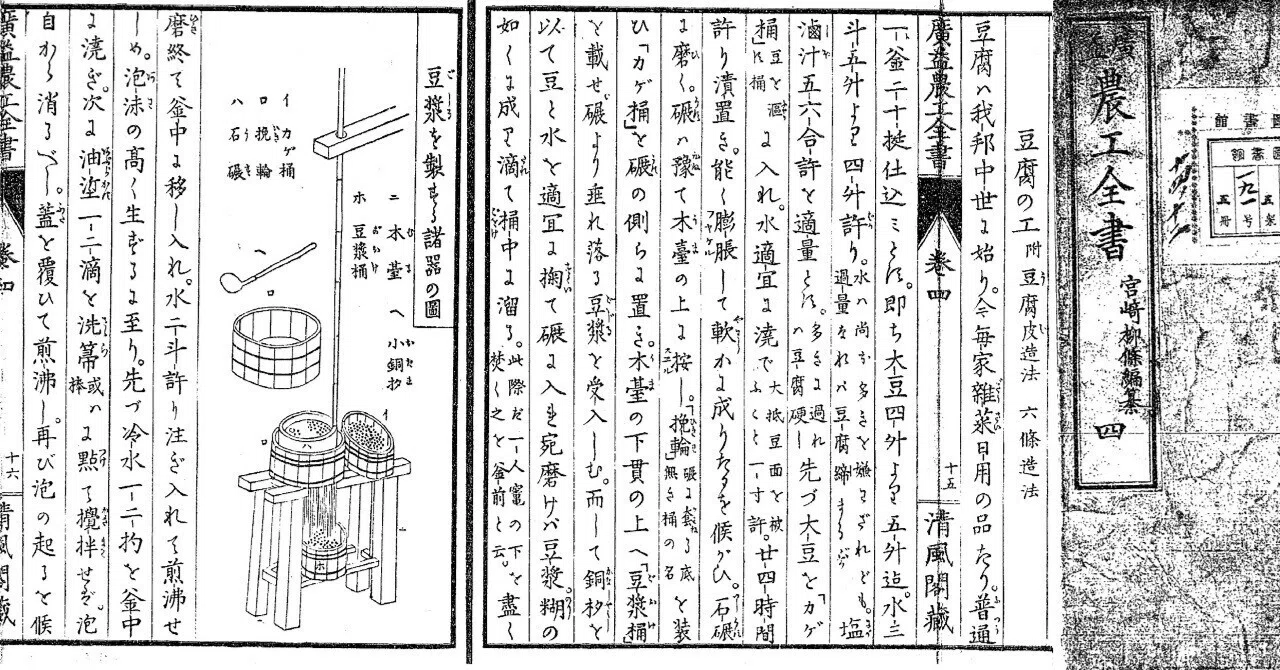 廣益 農工全書 四
宮崎柳條編纂
豆腐の工 附豆腐皮造法 六條造法
豆腐ハ我邦中世に始り。今毎家雜菜日用の品たり。普通
廣益農工全書 卷四 十五 清風閣藏
一釜二十挺仕込ミとす。即ち大豆四升より五升迄。水三
斗五升より四升許り。水ハ尚ほ多きを嫌はざれども。過量なれバ豆腐締まらず 塩
滷汁五六合許を適量とす。多きに過れハ豆腐硬し 先づ大豆を「カゲ
桶」豆を 桶 に入れ。水適宜に澆で大抵豆面を被ふこと一寸許。廿四時間
許り漬置き。能く膨脹して軟かに成りたるを候かひ。石碾
に磨く。碾ハ豫て木臺の上に按し。「挽輪」碾に套る底無き桶の名 を装
ひ「カゲ桶」を碾の側らに置き。木臺の下貫の上へ「豆漿桶」
を載せ碾より垂れ落る豆漿を受入しむ。而して銅杓を
以て豆と水を適宜に掬て碾に入る宛磨けバ豆漿糊の
如くに成り滴て桶中に溜る。此際だ一人竈の下を焚く之を釜前と云。を盡く
豆漿を製する諸器の圖
イ カゲ桶
ロ 挽輪
ハ 石碾
ニ 木臺
ホ 豆漿桶
ヘ 小銅杓
磨終て釜中に移し入れ。水二斗許り注ぎ入れて煎沸せ
しめ。泡沫の高く生ずるに至り。先づ冷水一二杓を釜中
に澆ぎ。次に油塗一二滴を洗箒或ハ棒に點て攪拌せバ。泡
自から消るべし。蓋を覆ひて煎沸し。再び泡の起るを候
廣益農工全書 卷四 十六 清風閣藏